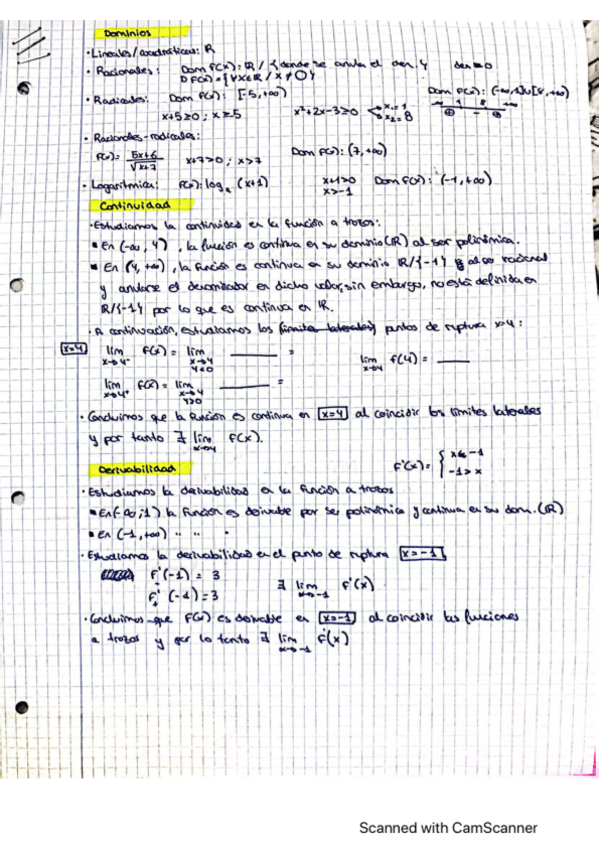 Dominios
· Lineales/cuadráticas: R
· Racionales: Dom f(x): R / {donde se anula el den.} den = 0
D f(x) = {∀x∈R / x ≠ 0}
· Radicales: Dom f(x): [-5,+∞) Dom f(x): (-∞,1]∪[8,+∞)
x+5≥0; x≥5 x²+2x-3≥0 x₁=1 x₂=8
-∞ 1 8 +∞
⊕ - ⊕
· Racionales-radicales:
f(x) = 5x+6 / √x+7 x+7>0; x>7 Dom f(x): (7,+∞)
· Logarítmica: f(x): logₐ (x+1) x+1>0 Dom f(x): (-1,+∞)
x>-1
Continuidad
· Estudiamos la continuidad en la función a trozos:
En (-∞, 4), la función es continua en su dominio (R) al ser polinómica.
En (4, +∞), la función es continua en su dominio R/{-1} al ser racional
y anularse el denominador en dicho valor, sin embargo, no está definida en
R/{-1} por lo que es continua en R.
· A continuación, estudiamos los (límites laterales) puntos de ruptura x=4:
x=4 lim x→4⁻ f(x) = lim x→4 4<0 ______ = lim x→4 f(4) = ____
lim x→4⁺ f(x) = lim x→4 4>0 ______ =
· Concluimos que la función es continua en x=4 al coincidir los límites laterales
y por tanto ∃ lim x→4 f(x).
Derivabilidad
f'(x) = { x≤-1
-1>x
· Estudiamos la derivabilidad en la función a trozos
En (-∞;1) la función es derivable por ser polinómica y continua en su dom. (R)
En (-1,+∞) " " "
· Estudiamos la derivabilidad en el punto de ruptura x=-1
f'₋(-1) = 3 ∃ lim x→-1 f'(x)
f'₊(-1) = 3
· Concluimos que f(x) es derivable en x=-1 al coincidir las funciones
a trozos y por lo tanto ∃ lim x→-1 f'(x)
Scanned with CamScanner